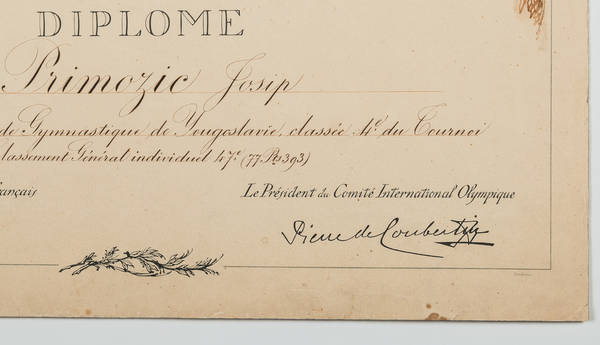 DIPLOME
Primozic Josip
de Gymnastique de Yougoslavie, classée 4e du Tournoi
lassement Général individuel 47e (77 Pts 393)
rançais
Le Président du Comité International Olympique
Pierre de Coubertin